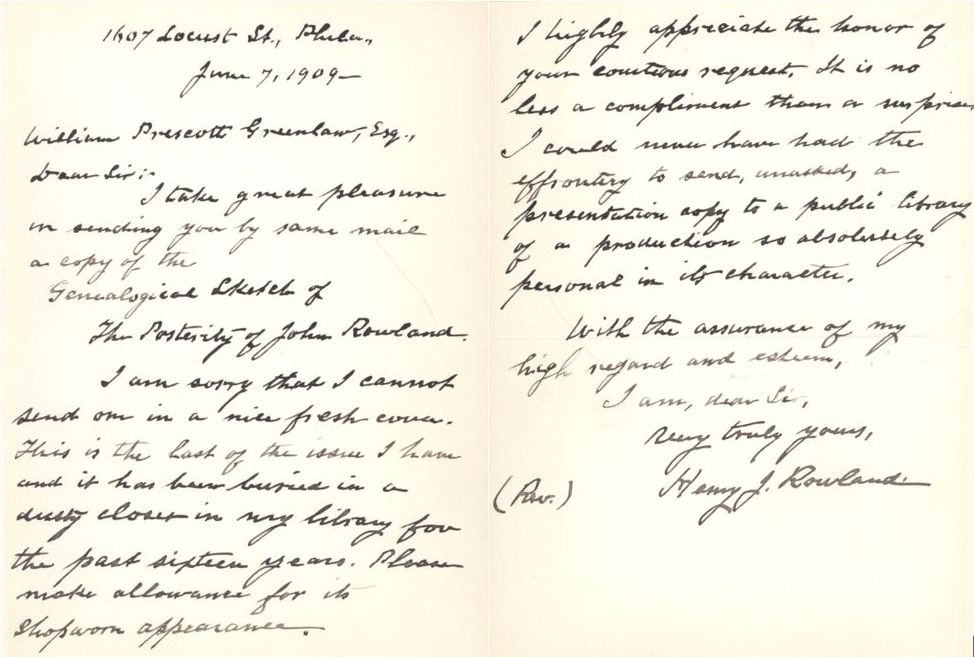 1607 Locust St., Phila.,
June 7, 1909—
William Prescott Greenlaw, Esq.,
Dear Sir:-
I take great pleasure
in sending you by same mail
a copy of the
Genealogical Sketch of
The Posterity of John Rowland.
I am sorry that I cannot
send one in a nice fresh cover.
This is the last of the issue I have
and it has been buried in a
dusty closet in my library for
the past sixteen years. Please
make allowance for its
shopworn appearance.
I highly appreciate the honor of
your courteous request. It is no
less a compliment than a surprise
I could never have had the
effrontery to send, unasked, a
presentation copy to a public library
of a production so absolutely
personal in its character.
With the assurance of my
high regard and esteem,
I am, dear Sir,
Very truly yours,
Henry J. Rowland
(Rev.)